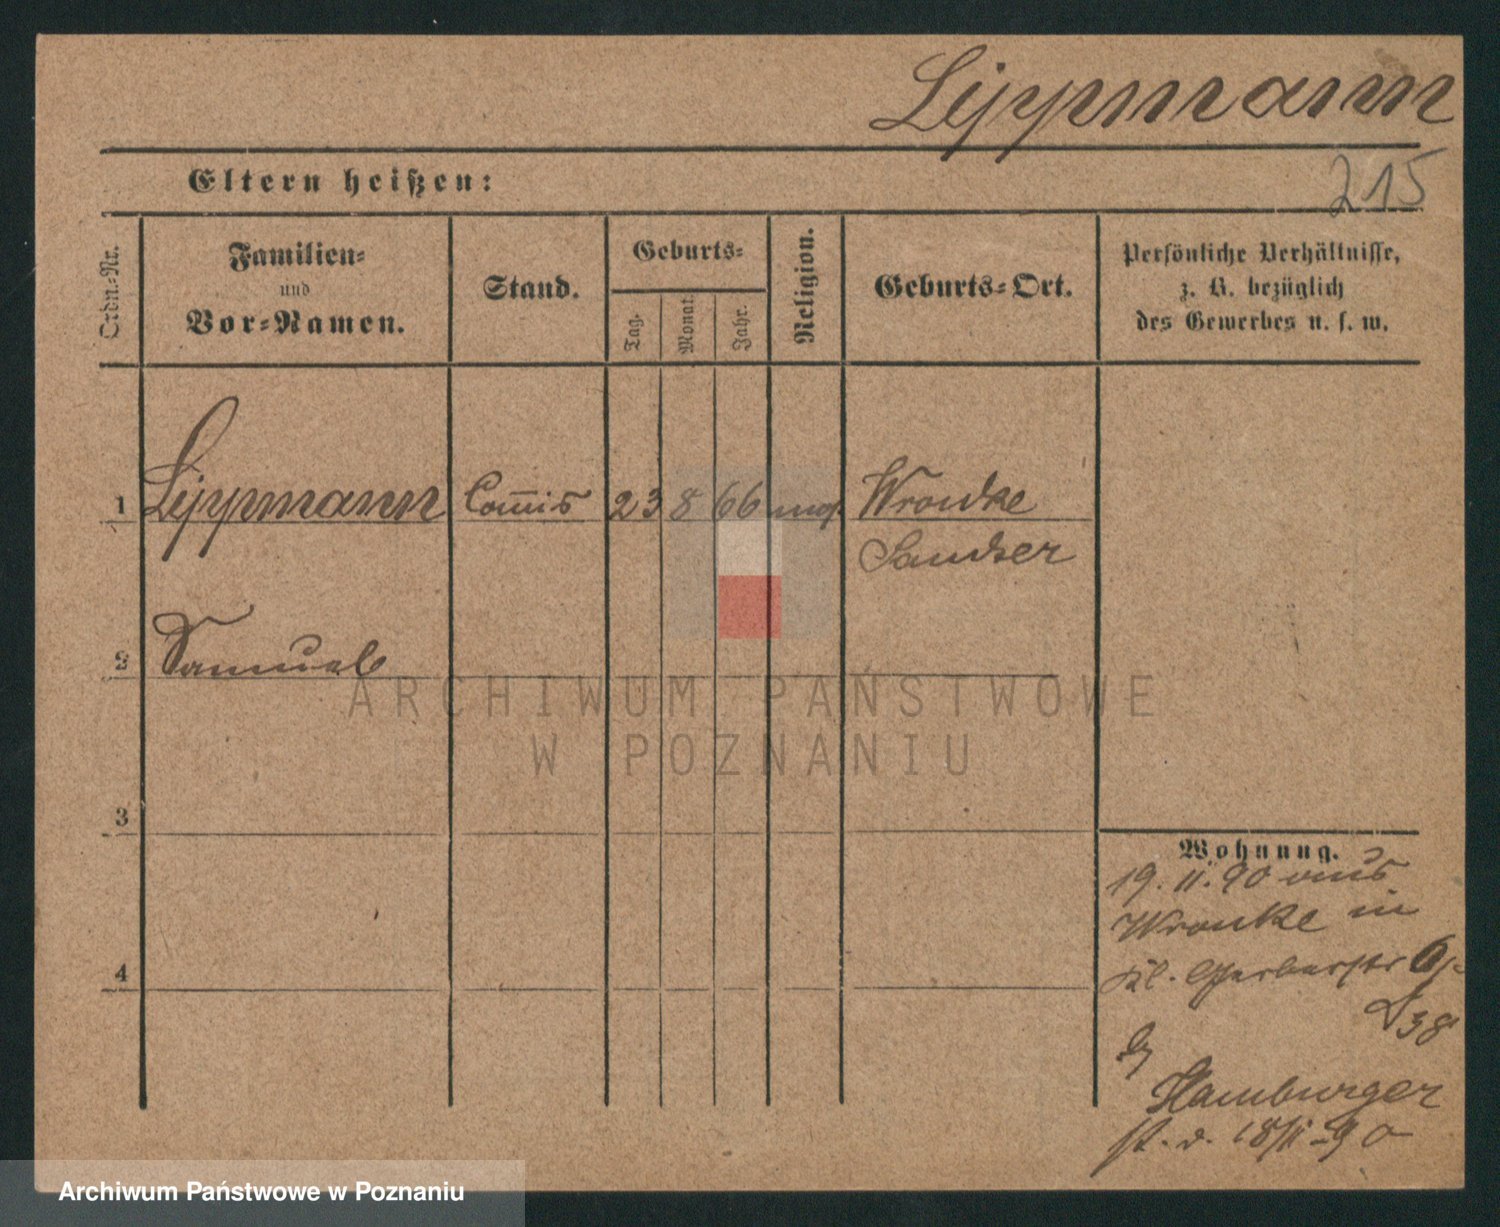 Lippmann
215
Eltern heißen:
Ordn.-Nr.
Familien-
und
Vor-Namen.
Stand.
Geburts-
Tag.
Monat
Jahr.
Religion.
Geburts-Ort.
Persönliche Verhältnisse,
z. B. bezüglich
des Gewerbes u. s. w.
1 Lippmann Commis 23 8 66 mos. Wronke
Samter
2 Samuel
3
4
Wohnung.
19. 11. 90 aus
Wronke in
Kl. Gerberstr 6
L 38
Hamburger
18/11 90
ARCHIWUM PAŃSTWOWE
W POZNANIU
Archiwum Państwowe w Poznaniu